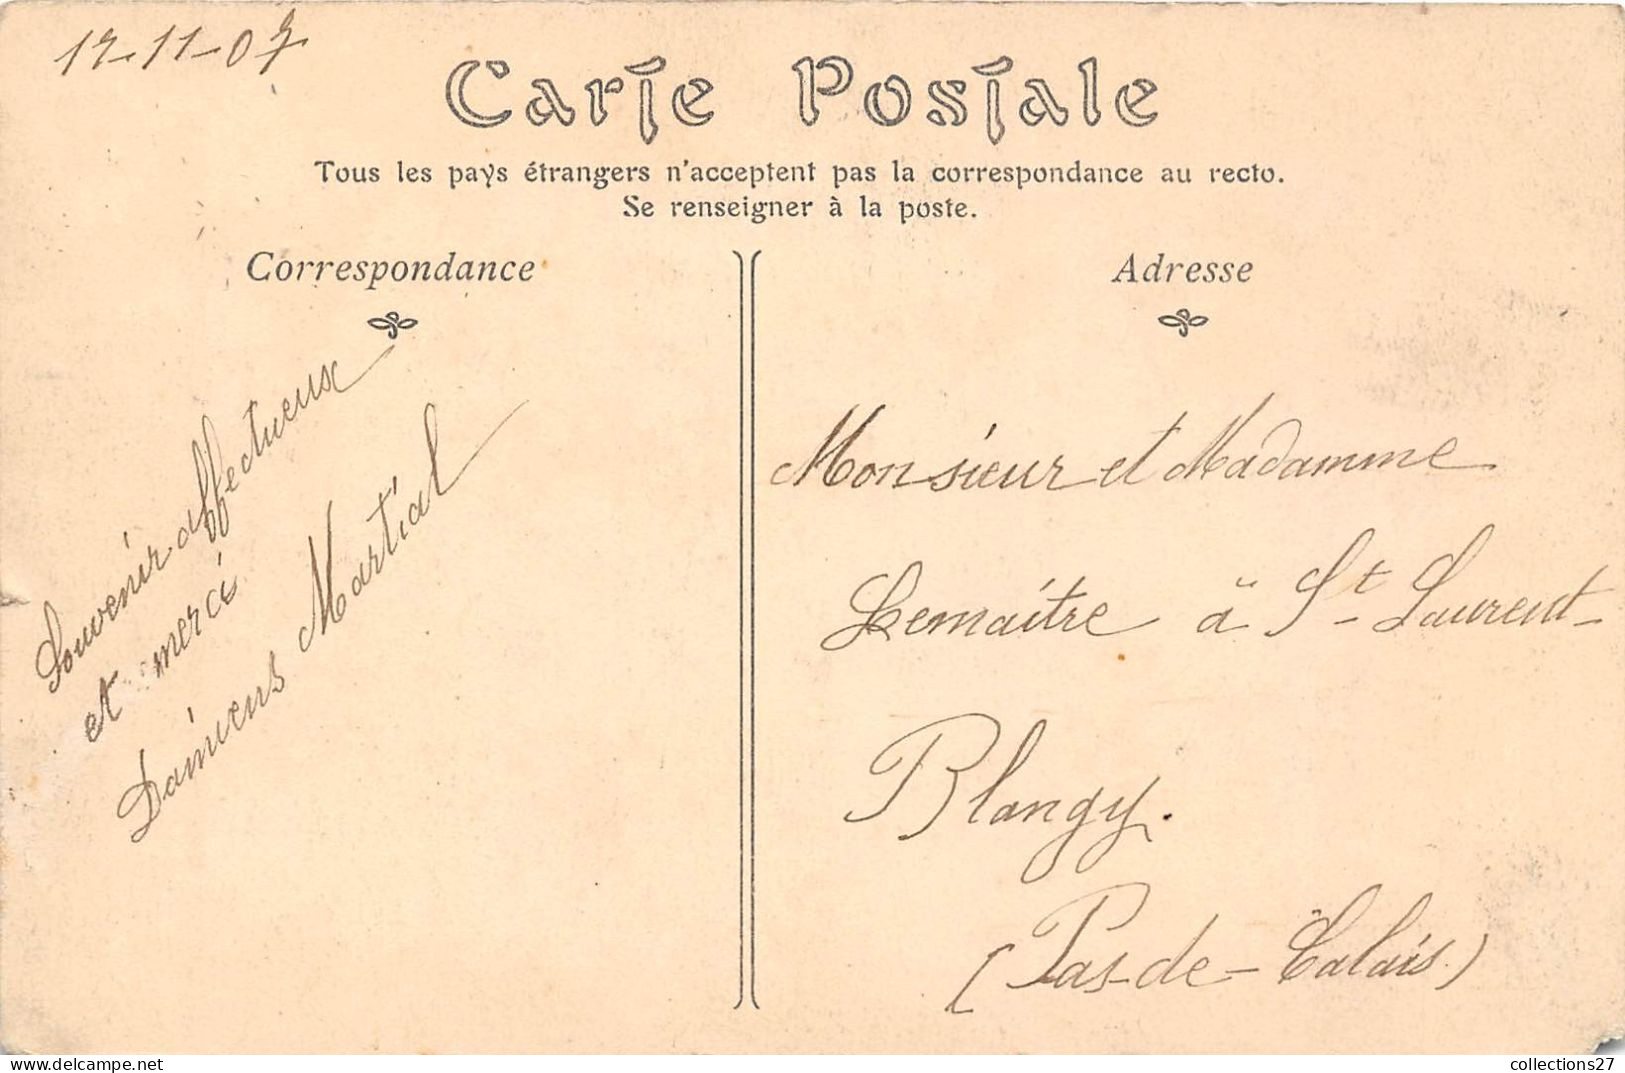 17-11-07
Carte Postale
Tous les pays étrangers n'acceptent pas la correspondance au recto.
Se renseigner à la poste.
Correspondance
Souvenir affectueux
et merci
Damiens Martial
Adresse
Monsieur et Madamme
Lemaître à St-Laurent-
Blangy.
(Pas-de-Calais.)
collections27